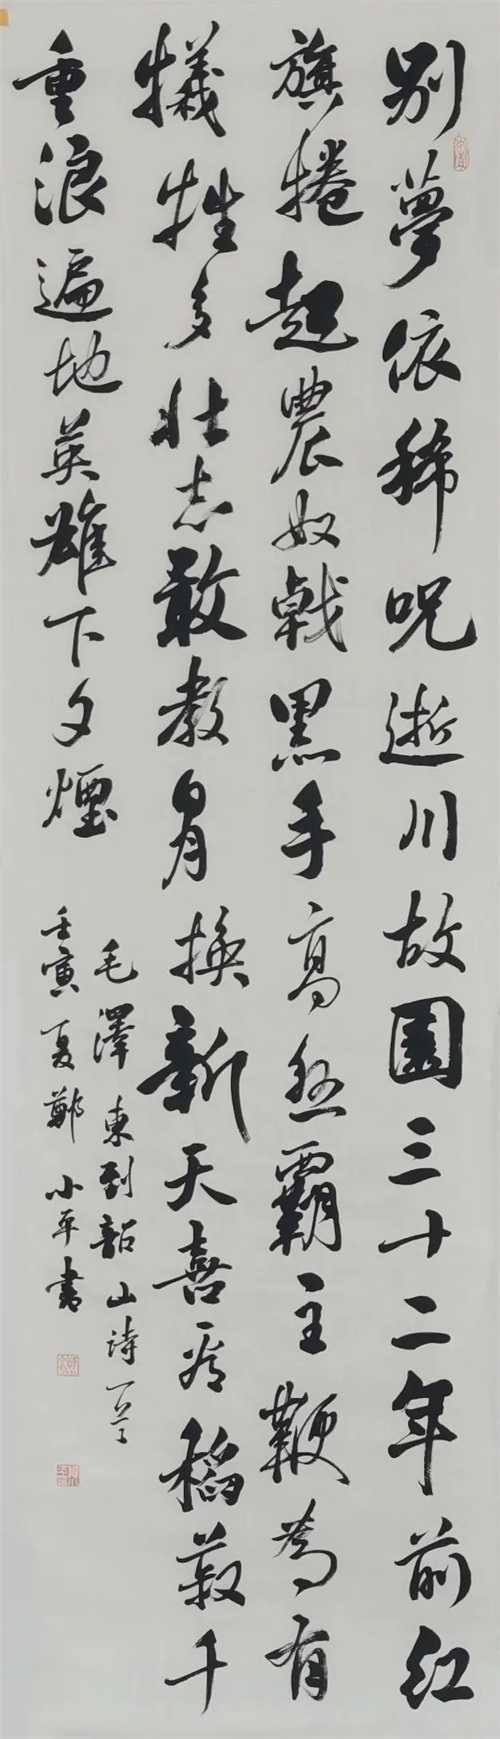 别夢依稀呪逝川故園三十二年前红
旗捲起農奴戟黑手高悬霸主鞭為有
犧牲多壮志敢教日月換新天喜看稻菽千
重浪遍地英雄下夕煙
毛澤東到韶山诗一首
壬寅夏鄭小平書